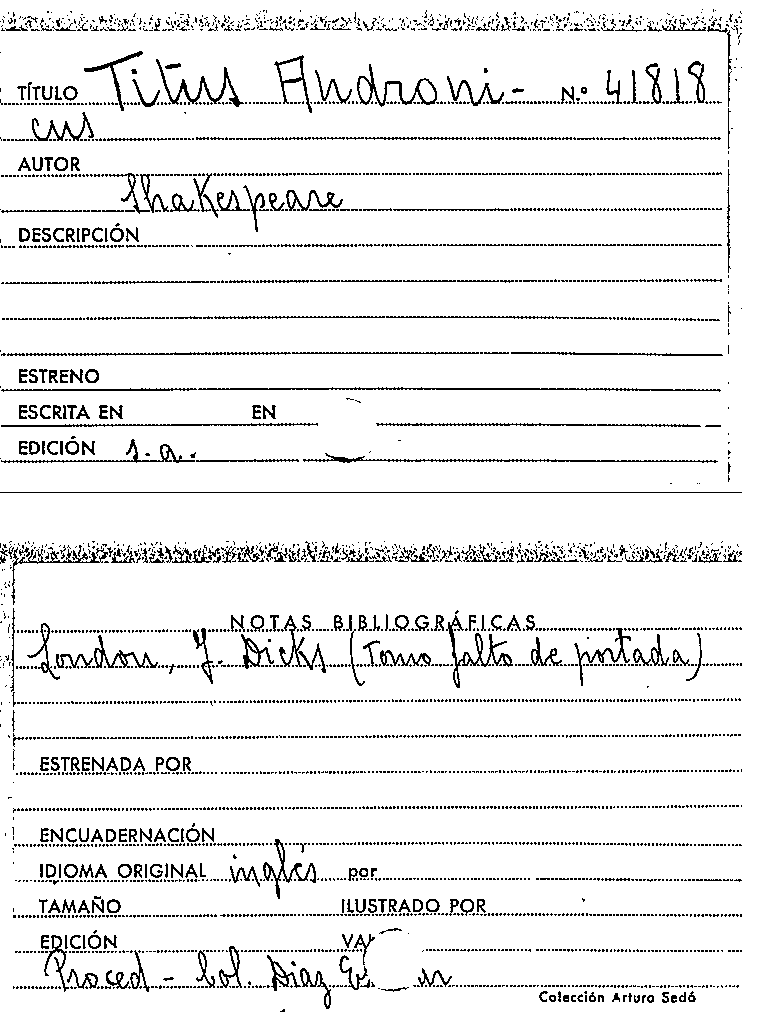 TÍTULO Titus Androni- N.º 41818
cus
AUTOR
Shakespeare
DESCRIPCIÓN
ESTRENO
ESCRITA EN EN
EDICIÓN s.a.
NOTAS BIBLIOGRÁFICAS
London, J. Dicks (Tomo falto de portada)
ESTRENADA POR
ENCUADERNACIÓN
IDIOMA ORIGINAL inglés por
TAMAÑO ILUSTRADO POR
EDICIÓN
Proced - Col. Diaz
Colección Arturo Sedó